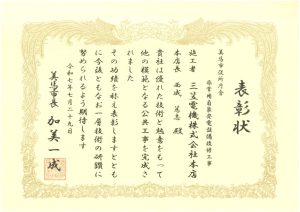 表彰状
美馬市役所庁舎
非常用自家発電設備改修工事
施工者 三笠電機株式会社本店
本店長 殿
貴社は優れた技術と熱意をもって
他の模範となる公共工事を完成さ
れました
その功績を称え表彰しますととも
に今後ともなお一層技術の研鑽に
努められるよう期待します
令和七年七月二十九日
美馬市長 加美一成